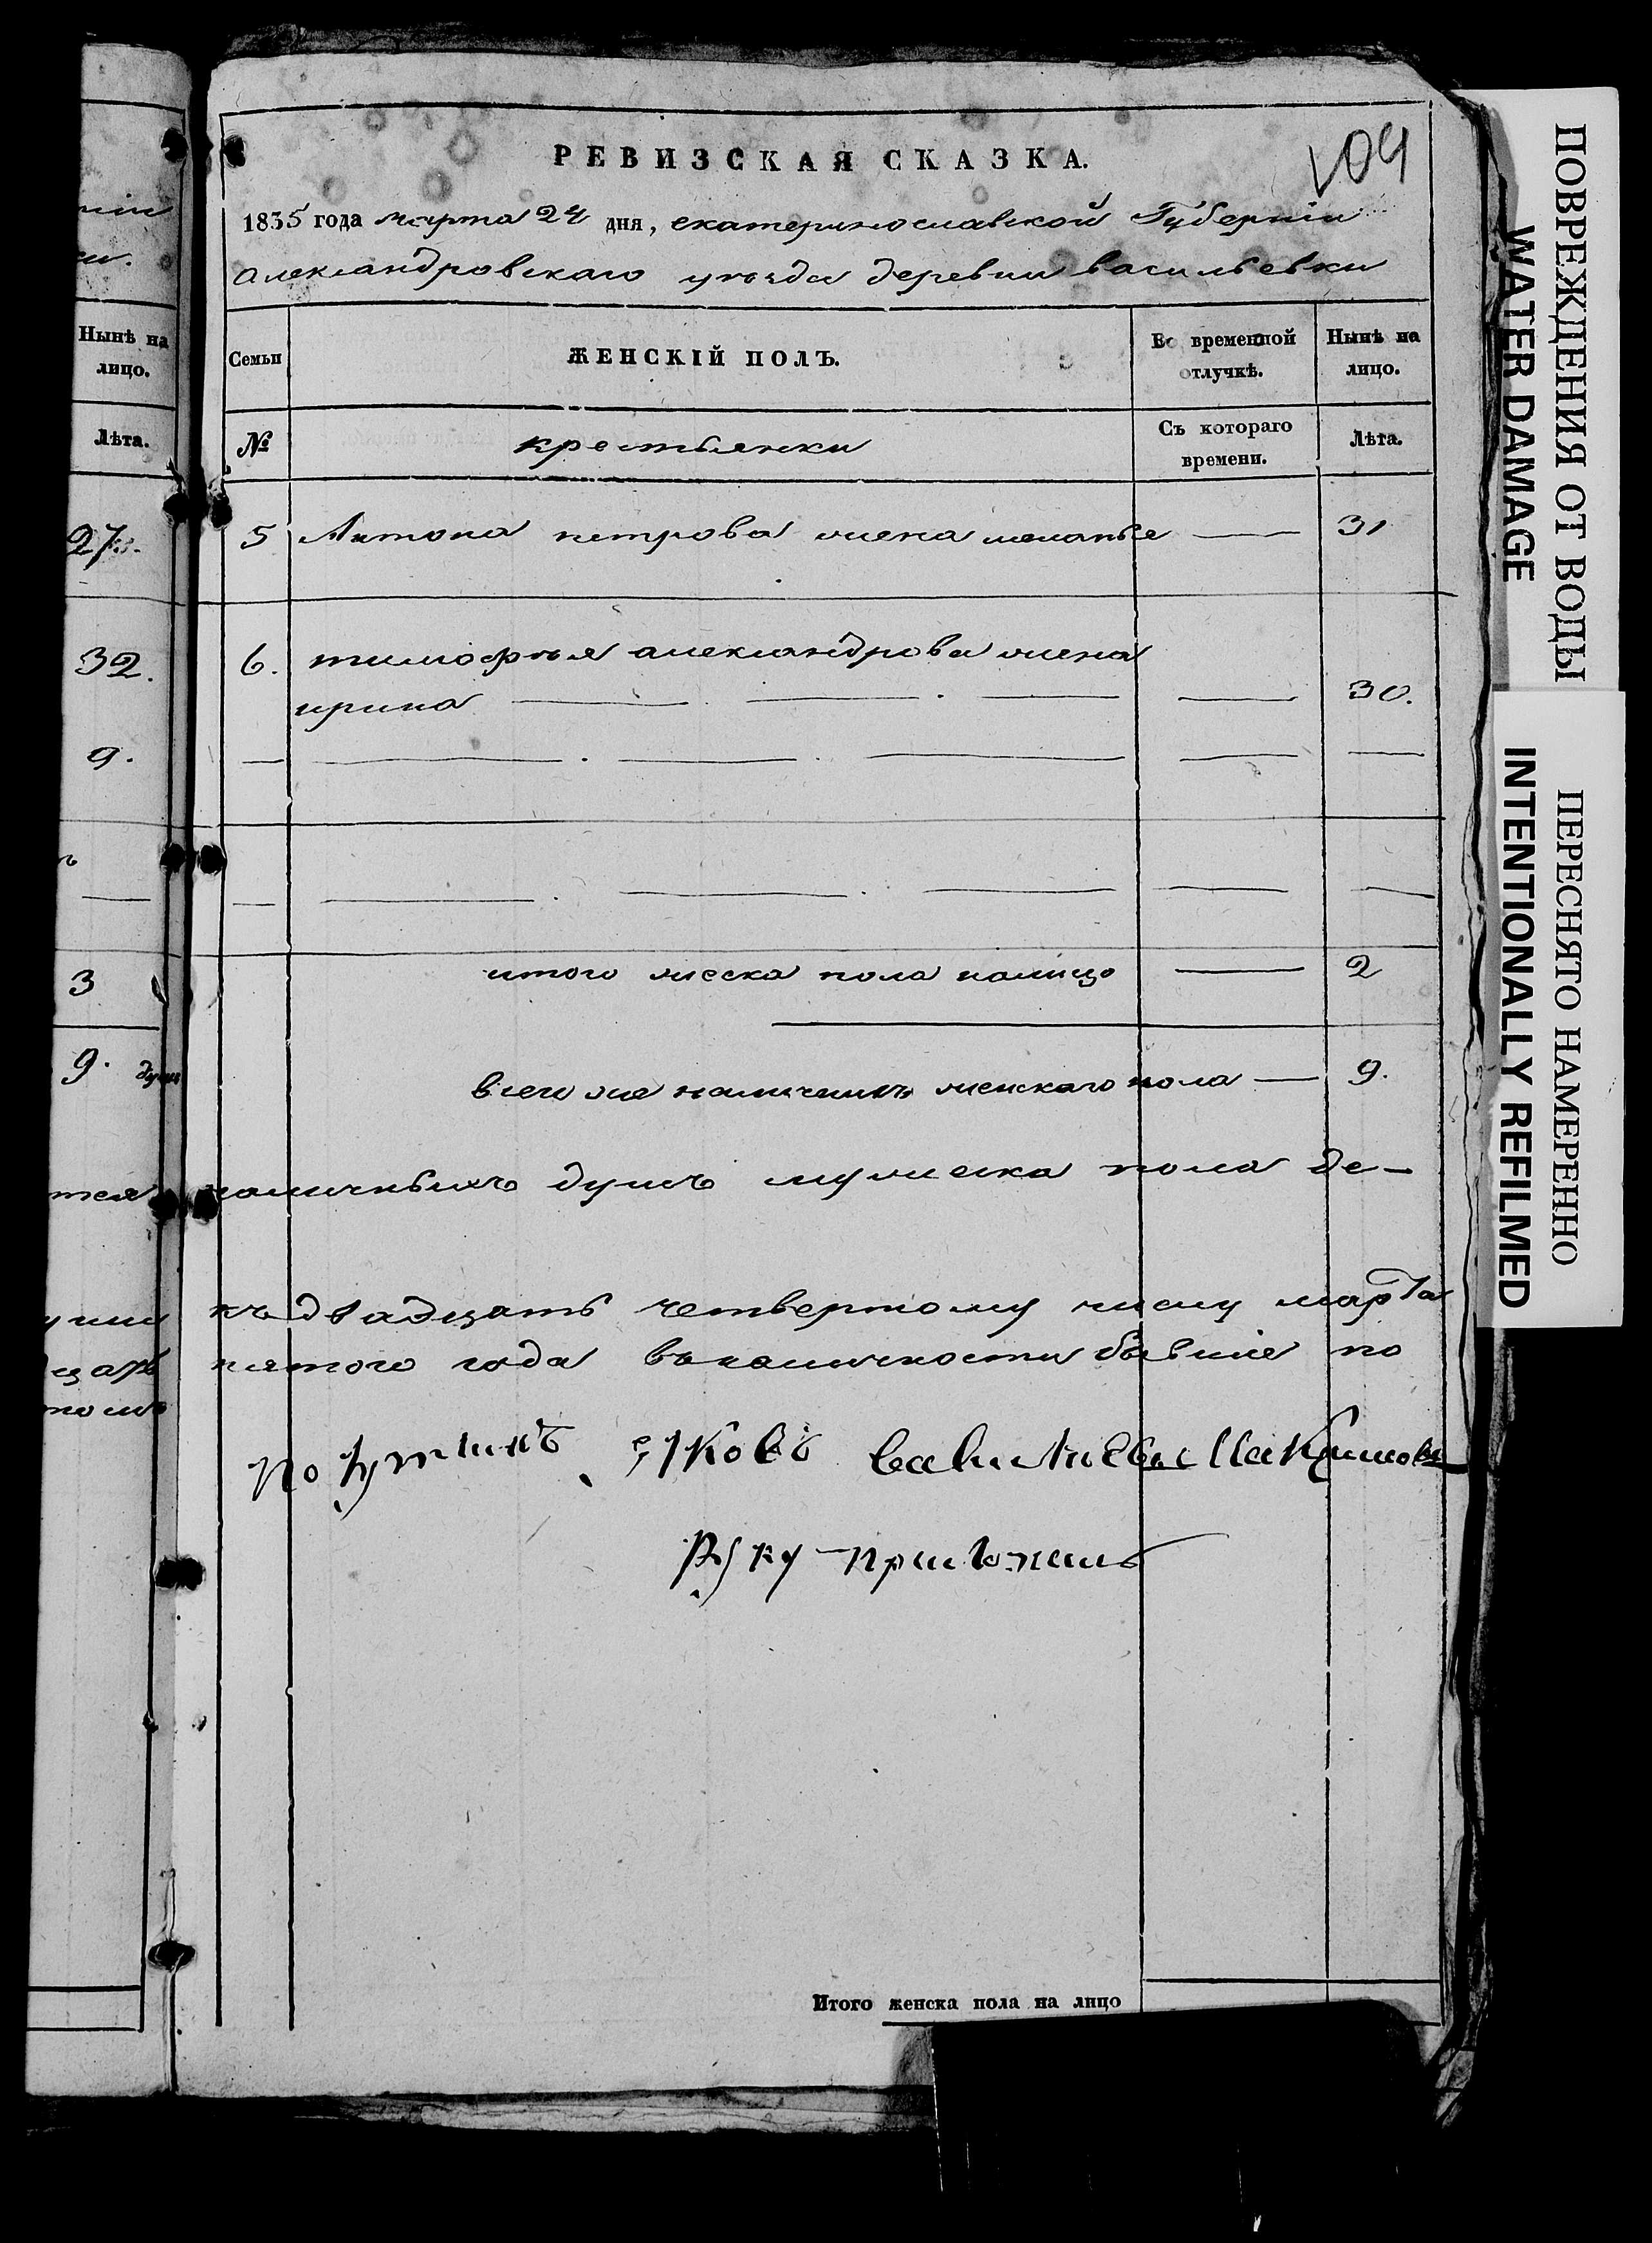 РЕВИЗСКАЯ СКАЗКА.
109
1835 года марта 24 дня, екатеринославской Губерніи
александровскаго уѣзда деревни васильевки
Нынѣ на лицо.
Лѣта.
27
32.
9.
3
9. душ
Семьи
ЖЕНСКІЙ ПОЛЪ.
Во временной отлучкѣ.
Нынѣ на лицо.
№
крестьянки
Съ котораго времени.
Лѣта.
5 Антона петрова жена меланье — 31
6. тимофѣя александрова жена
ирина — 30.
итого женска пола налицо — 2
всего же наличныхъ женскаго пола — 9.
наличныхъ душъ мужеска пола де-
къ двадцать четвертому числу марта
пятого года въ наличности бывшіе по
руку приложилъ
Итого женска пола на лицо
ПОВРЕЖДЕНИЯ ОТ ВОДЫ
WATER DAMAGE
ПЕРЕСНЯТО НАМЕРЕННО
INTENTIONALLY REFILMED